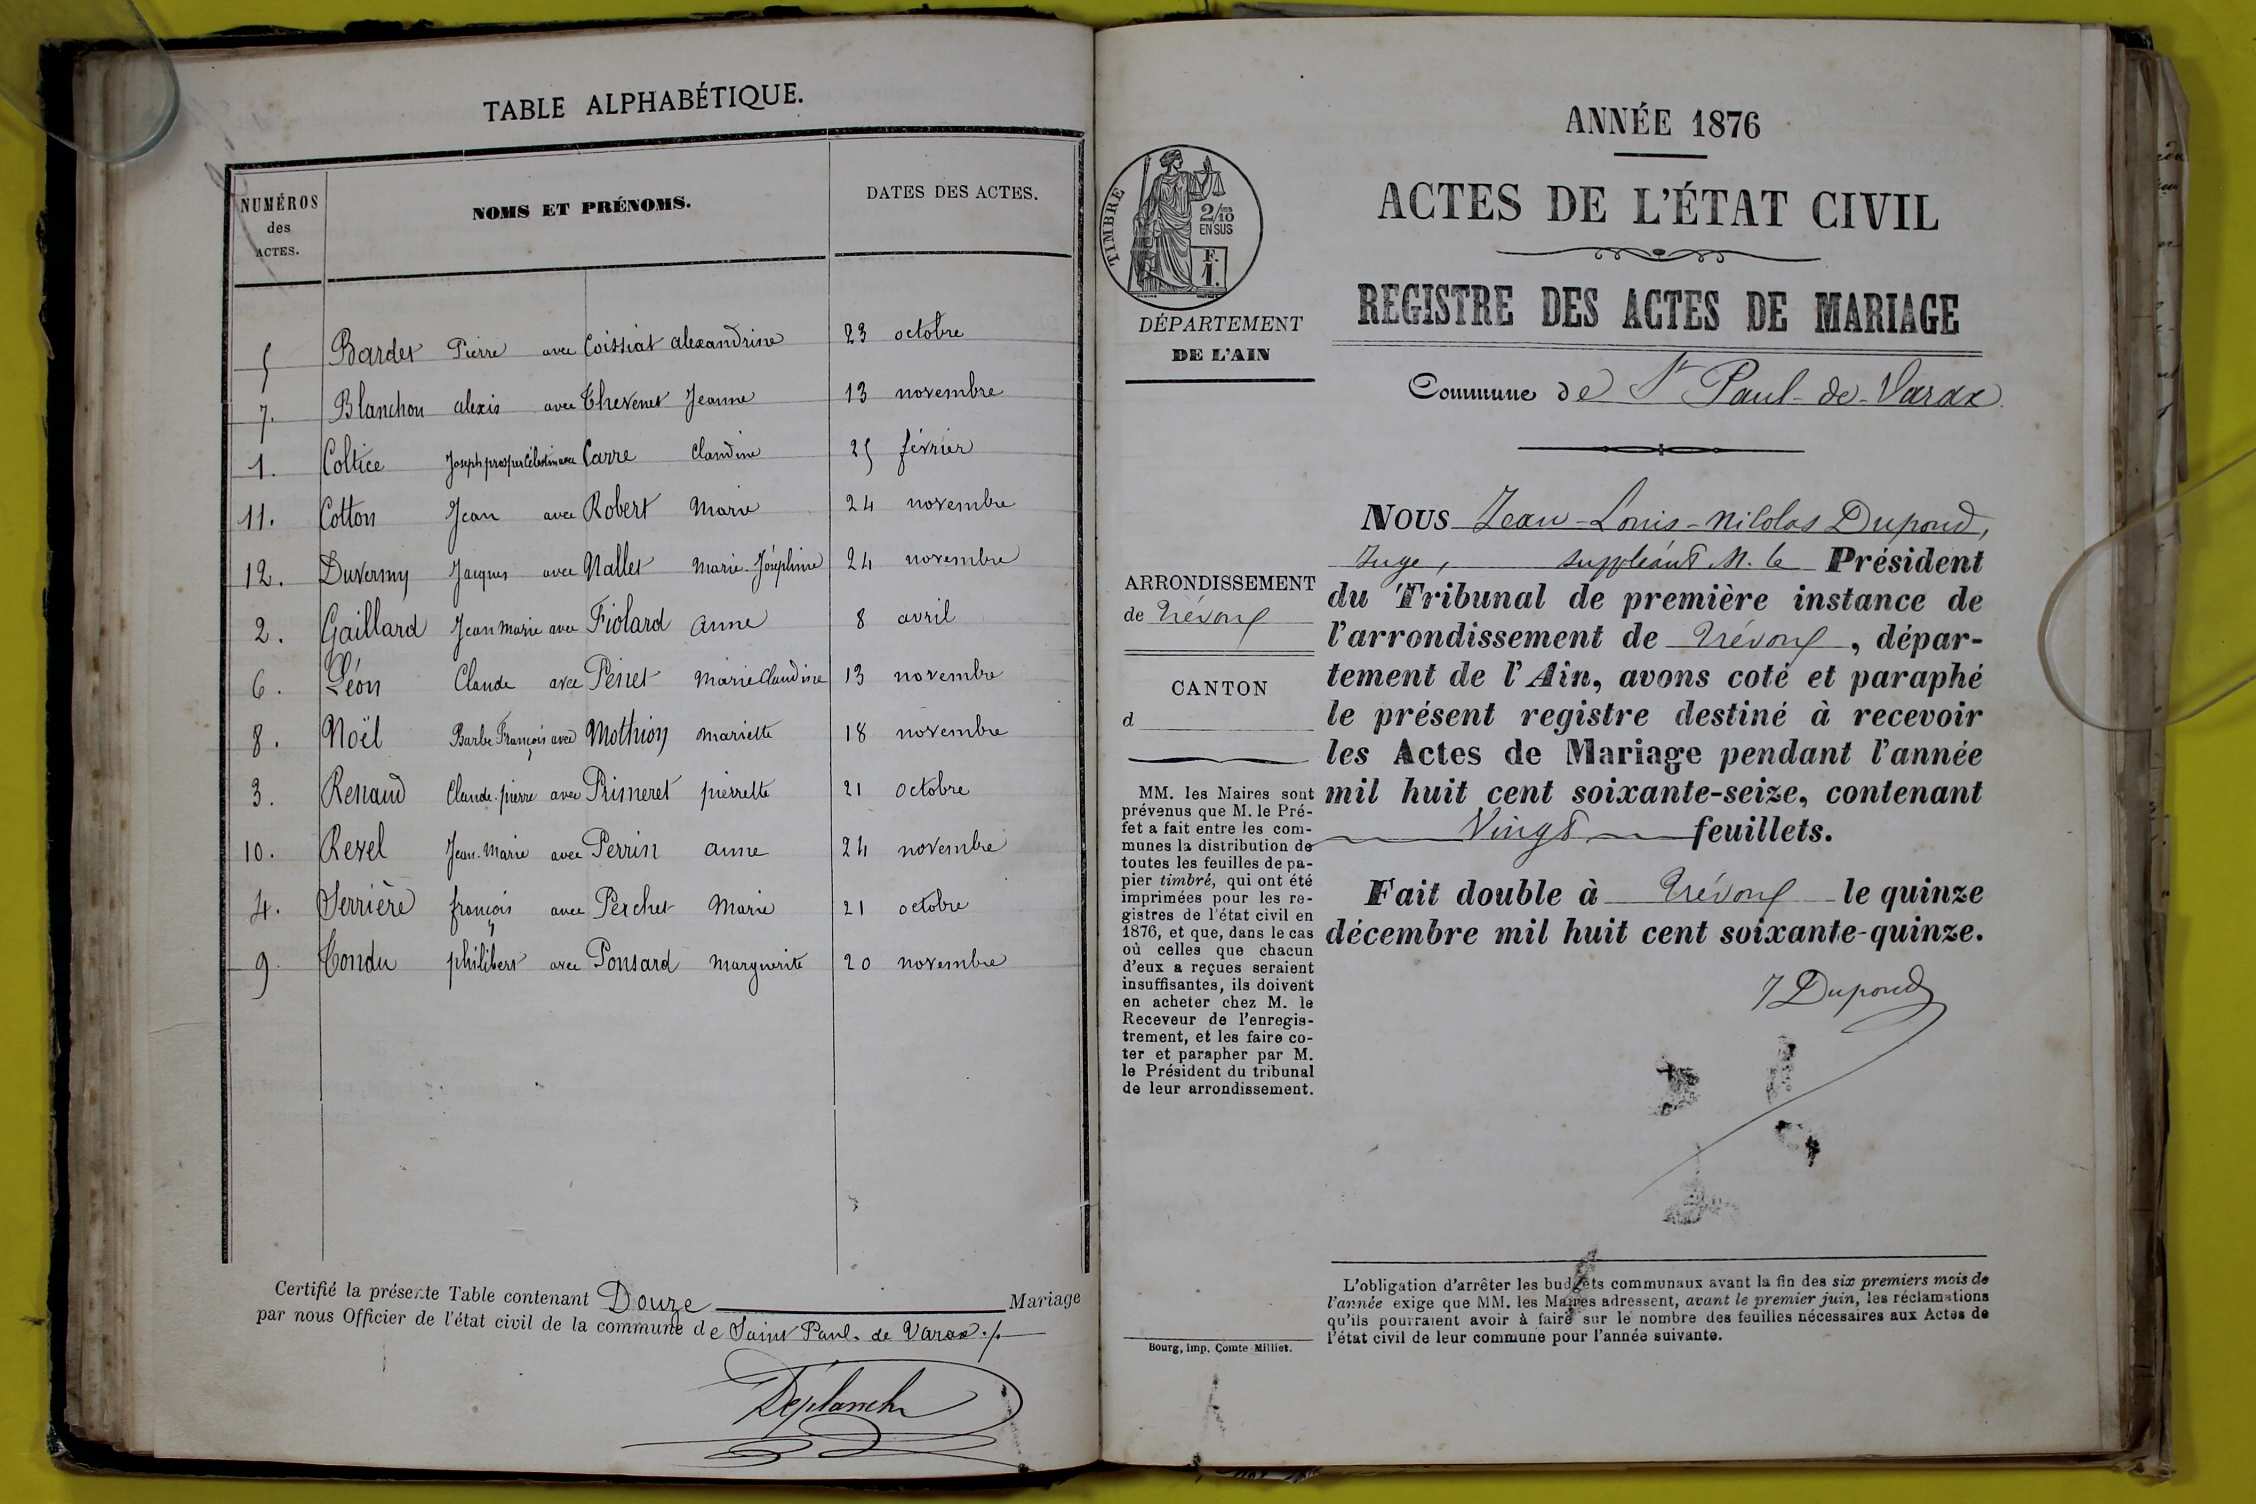 TABLE ALPHABÉTIQUE.
NUMÉROS
des
ACTES.
NOMS ET PRÉNOMS.
DATES DES ACTES.
5 Bardet Pierre avec Coissiat alexandrine 23 octobre
7. Blanchon alexis avec Thevenet Jeanne 13 novembre
1. Coltice Joseph prosper Célestin avec Carre Claudine 25 février
11. Cotton Jean avec Robert Marie 24 novembre
12. Duverny Jacques avec Nallet Marie-Joséphine 24 novembre
2. Gaillard Jean Marie avec Fiolard anne 8 avril
6. Léon Claude avec Penet Marie Claudine 13 novembre
8. Noël Barbe François avec Mothion mariette 18 novembre
3. Renaud Claude-pierre avec Primeret pierrette 21 octobre
10. Revel Jean-Marie avec Perrin anne 24 novembre
4. Serrière françois avec Perchet Marie 21 octobre
9. Tondu philibert avec Ponsard Marguerite 20 novembre
Certifié la présente Table contenant Douze Mariage
par nous Officier de l'état civil de la commune de Saint Paul-de Varax
Déplanche
ANNÉE 1876
ACTES DE L'ÉTAT CIVIL
REGISTRE DES ACTES DE MARIAGE
Commune de St Paul-de-Varax
TIMBRE
2/10
EN SUS
F.
1.
DÉPARTEMENT
DE L'AIN
ARRONDISSEMENT
de Trévoux
CANTON
d
MM. les Maires sont
prévenus que M. le Pré-
fet a fait entre les com-
munes la distribution de
toutes les feuilles de pa-
pier timbré, qui ont été
imprimées pour les re-
gistres de l'état civil en
1876, et que, dans le cas
où celles que chacun
d'eux a reçues seraient
insuffisantes, ils doivent
en acheter chez M. le
Receveur de l'enregis-
trement, et les faire co-
ter et parapher par M.
le Président du tribunal
de leur arrondissement.
Bourg, imp. Comte-Milliet.
NOUS Jean-Louis-Nicolas Dupond,
Juge, suppléant M. le Président
du Tribunal de première instance de
l'arrondissement de Trévoux, dépar-
tement de l'Ain, avons coté et paraphé
le présent registre destiné à recevoir
les Actes de Mariage pendant l'année
mil huit cent soixante-seize, contenant
Vingt feuillets.
Fait double à Trévoux le quinze
décembre mil huit cent soixante-quinze.
J Dupond
L'obligation d'arrêter les budgets communaux avant la fin des six premiers mois de
l'année exige que MM. les Maires adressent, avant le premier juin, les réclamations
qu'ils pourraient avoir à faire sur le nombre des feuilles nécessaires aux Actes de
l'état civil de leur commune pour l'année suivante.